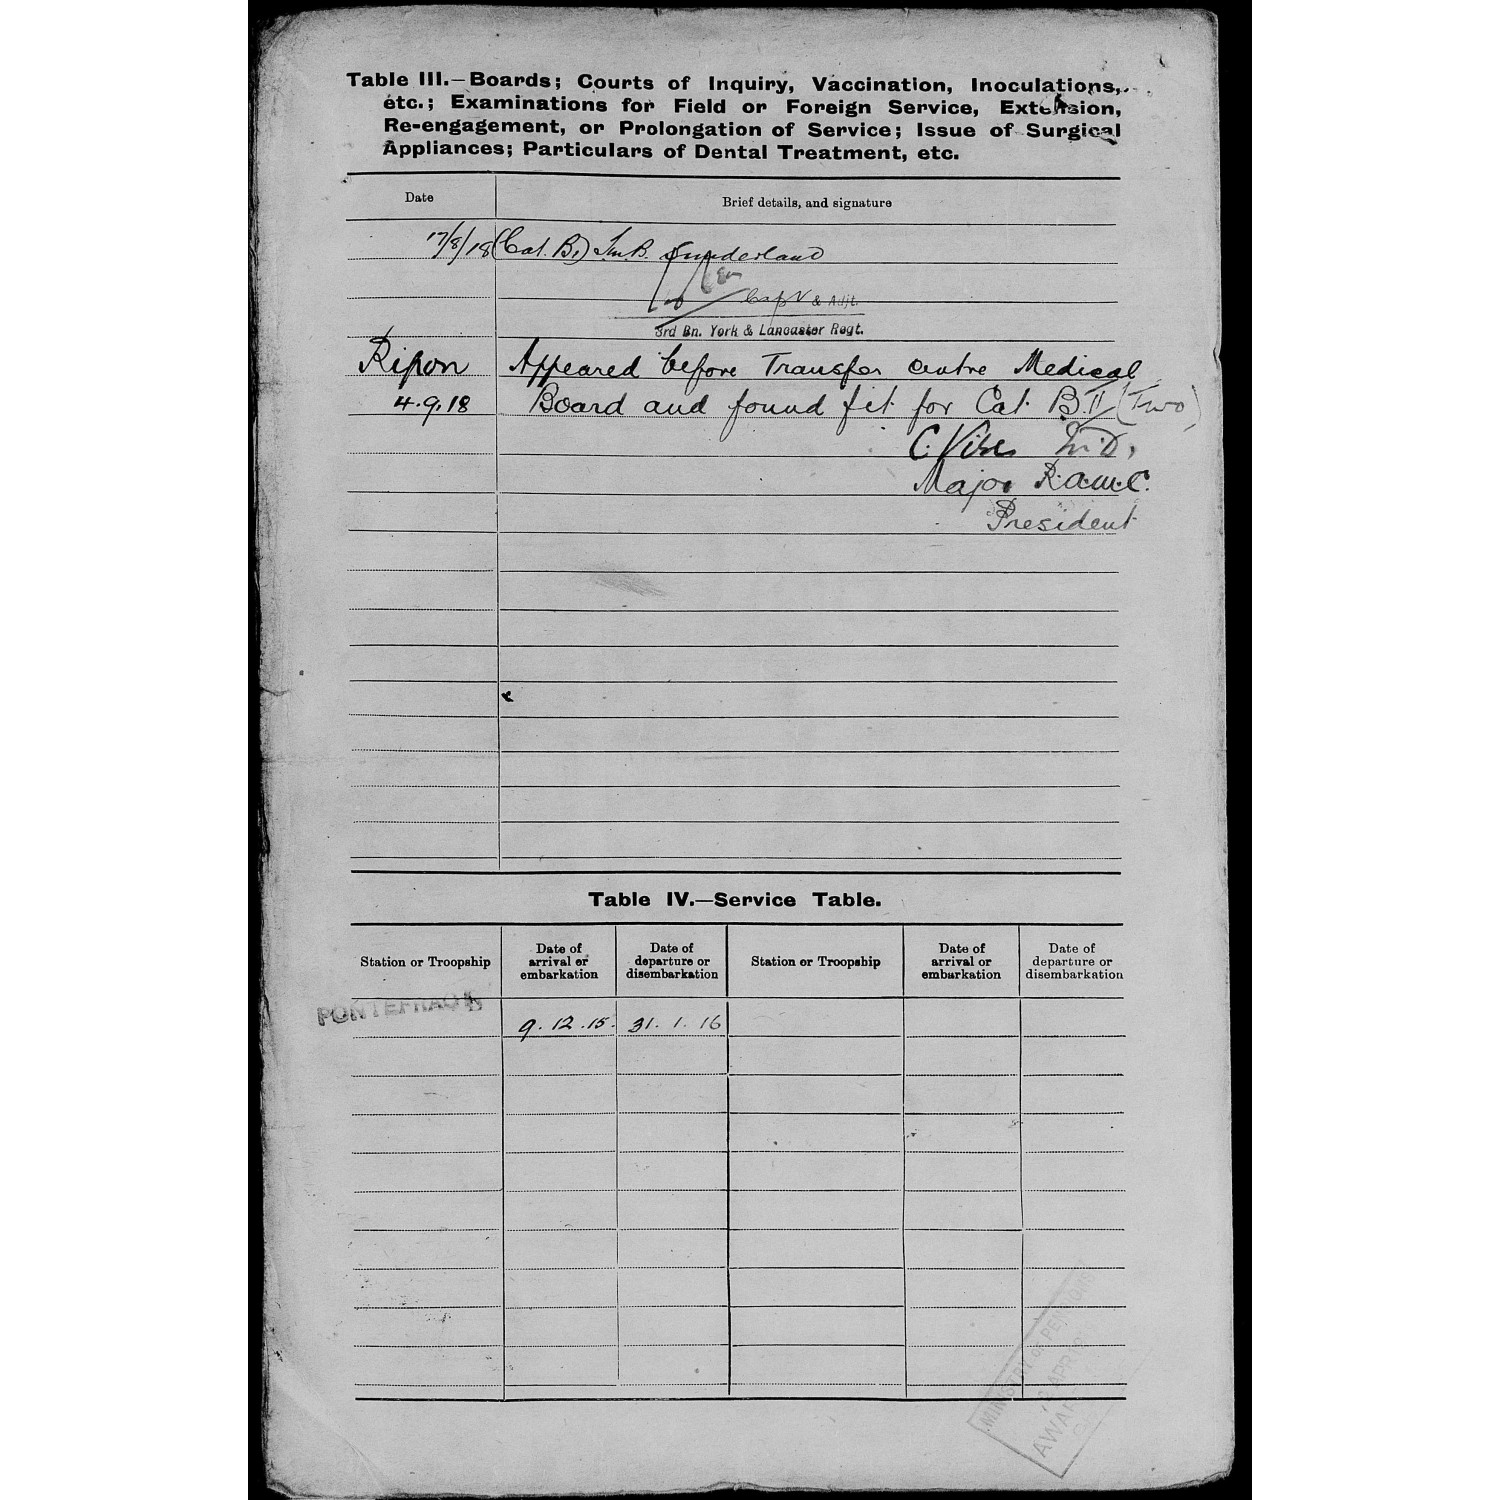 Table III.—Boards; Courts of Inquiry, Vaccination, Inoculations,
etc.; Examinations for Field or Foreign Service, Extension,
Re-engagement, or Prolongation of Service; Issue of Surgical
Appliances; Particulars of Dental Treatment, etc.
Date Brief details, and signature
17/8/18 (Cat. B1) Sunderland
Capt & Adjt.
3rd Bn. York & Lancaster Regt.
Ripon Appeared before Transfer centre Medical
4.9.18 Board and found fit for Cat B.II (Two)
C. M.D.
Major R.A.M.C.
President
Table IV.—Service Table.
Station or Troopship Date of arrival or embarkation Date of departure or disembarkation Station or Troopship Date of arrival or embarkation Date of departure or disembarkation
PONTEFRACT
9.12.15. 31.1.16
MINISTRY OF PENSIONS